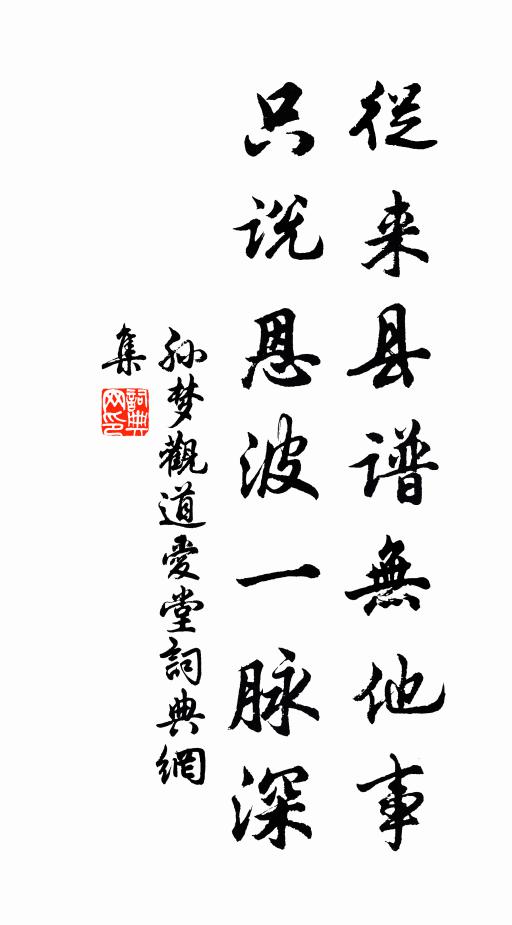 從来县谱無他事
只说恩波一脉深
孙梦觀道愛堂詞典網
集
詞典
网印